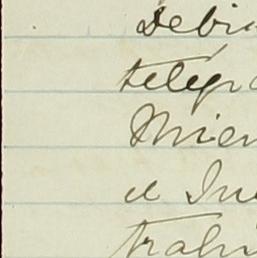 Debi
telegr
Mien
e In
trabi